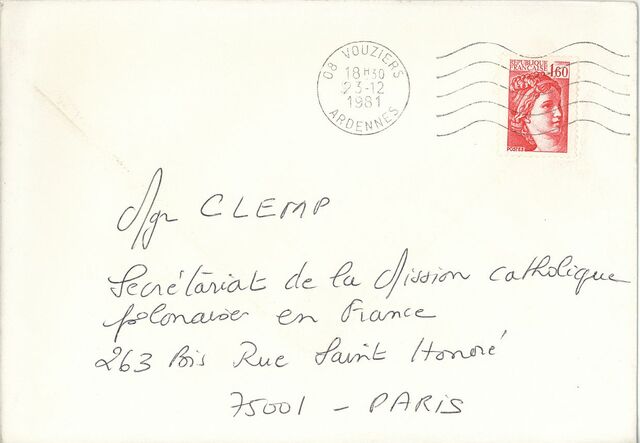 08 VOUZIERS
18H30
23-12
1981
ARDENNES
REPUBLIQUE
FRANCAISE 1,60
Mgr CLEMP
Secrétariat de la Mission catholique
polonaise en France
263 Bis Rue Saint Honoré
75001 - PARIS